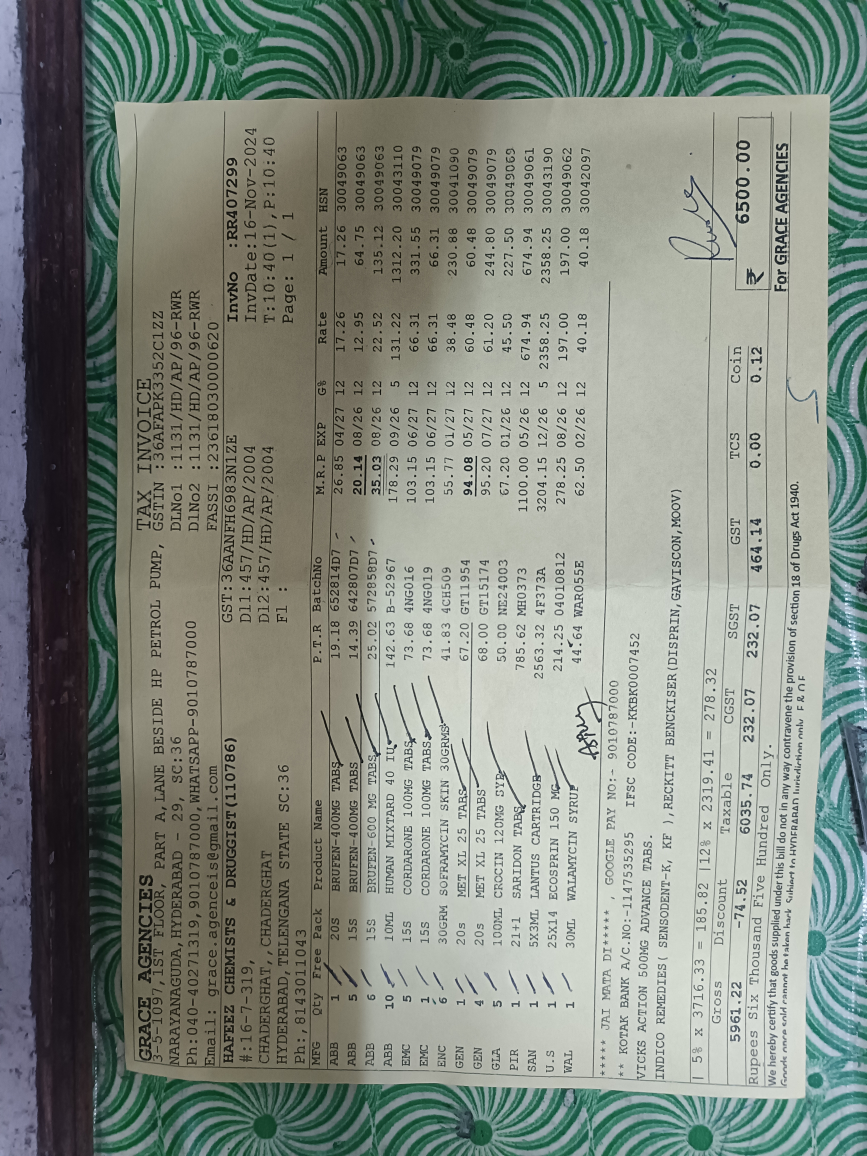 GRACE AGENCIES
3-5-1097,1ST FLOOR, PART A,LANE BESIDE HP PETROL PUMP,
NARAYANAGUDA,HYDERABAD - 29, SC:36
Ph:040-40271319,9010787000,WHATSAPP-9010787000
Email: grace.agenceis@gmail.com
TAX INVOICE
GSTIN :36AFAPK3352C1ZZ
DLNo1 :1131/HD/AP/96-RWR
DlNo2 :1131/HD/AP/96-RWR
FASSI :23618030000620
HAFEEZ CHEMISTS & DRUGGIST(110786)
#:16-7-319,
CHADERGHAT,,CHADERGHAT
HYDERABAD,TELENGANA STATE SC:36
Ph:,8143011043
GST:36AANFH6983N1ZE
D11:457/HD/AP/2004
D12:457/HD/AP/2004
Fl :
InvNo :RR407299
InvDate:16-Nov-2024
T:10:40(1),P:10:40
Page: 1 / 1
MFG Qty Free Pack Product Name P.T.R BatchNo M.R.P EXP G% Rate Amount HSN
ABB 1 20S BRUFEN-400MG TABS 19.18 652814D7 26.85 04/27 12 17.26 17.26 30049063
ABB 5 15S BRUFEN-400MG TABS 14.39 642807D7 20.14 08/26 12 12.95 64.75 30049063
ABB 6 15S BRUFEN-600 MG TABS 25.02 572858D7 35.03 08/26 12 22.52 135.12 30049063
ABB 10 10ML HUMAN MIXTARD 40 IU 142.63 B-52967 178.29 09/26 5 131.22 1312.20 30043110
EMC 5 15S CORDARONE 100MG TABS 73.68 4NG016 103.15 06/27 12 66.31 331.55 30049079
EMC 1 15S CORDARONE 100MG TABS 73.68 4NG019 103.15 06/27 12 66.31 66.31 30049079
ENC 6 30GRM SOFRAMYCIN SKIN 30GRMS 41.83 4CH509 55.77 01/27 12 38.48 230.88 30041090
GEN 1 20s MET XL 25 TABS 67.20 GT11954 94.08 05/27 12 60.48 60.48 30049079
GEN 4 20s MET XL 25 TABS 68.00 GT15174 95.20 07/27 12 61.20 244.80 30049079
GLA 5 100ML CROCIN 120MG SYP 50.00 NE24003 67.20 01/26 12 45.50 227.50 30049069
PIR 1 21+1 SARIDON TABS 785.62 MH0373 1100.00 05/26 12 674.94 674.94 30049061
SAN 1 5X3ML LANTUS CARTRIDGE 2563.32 4F373A 3204.15 12/26 5 2358.25 2358.25 30043190
U.S 1 25X14 ECOSPRIN 150 MG 214.25 04010812 278.25 08/26 12 197.00 197.00 30049062
WAL 1 30ML WALAMYCIN SYRUP 44.64 WAR055E 62.50 02/26 12 40.18 40.18 30042097
***** JAI MATA DI***** , GOOGLE PAY NO:- 9010787000
** KOTAK BANK A/C.NO:-1147535295 IFSC CODE:-KKBK0007452
VICKS ACTION 500MG ADVANCE TABS.
INDICO REMEDIES( SENSODENT-K, KF ),RECKITT BENCKISER(DISPRIN,GAVISCON,MOOV)
| 5% x 3716.33 = 185.82 |12% x 2319.41 = 278.32
Gross Discount Taxable CGST SGST GST TCS Coin
5961.22 -74.52 6035.74 232.07 232.07 464.14 0.00 0.12
₹ 6500.00
Rupees Six Thousand Five Hundred Only.
We hereby certify that goods supplied under this bill do not in any way contravene the provision of section 18 of Drugs Act 1940.
Goods once sold cannot be taken back. Subject to HYDERABAD Jurisdiction only. E & O E
For GRACE AGENCIES